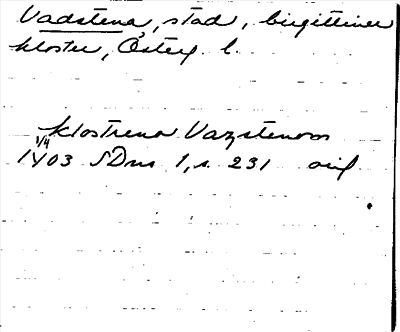 Vadstena, stad, birgittiner
kloster, Österg l.
klostrena Vazstenom
1/4
1403 SDns 1, s. 231 orig